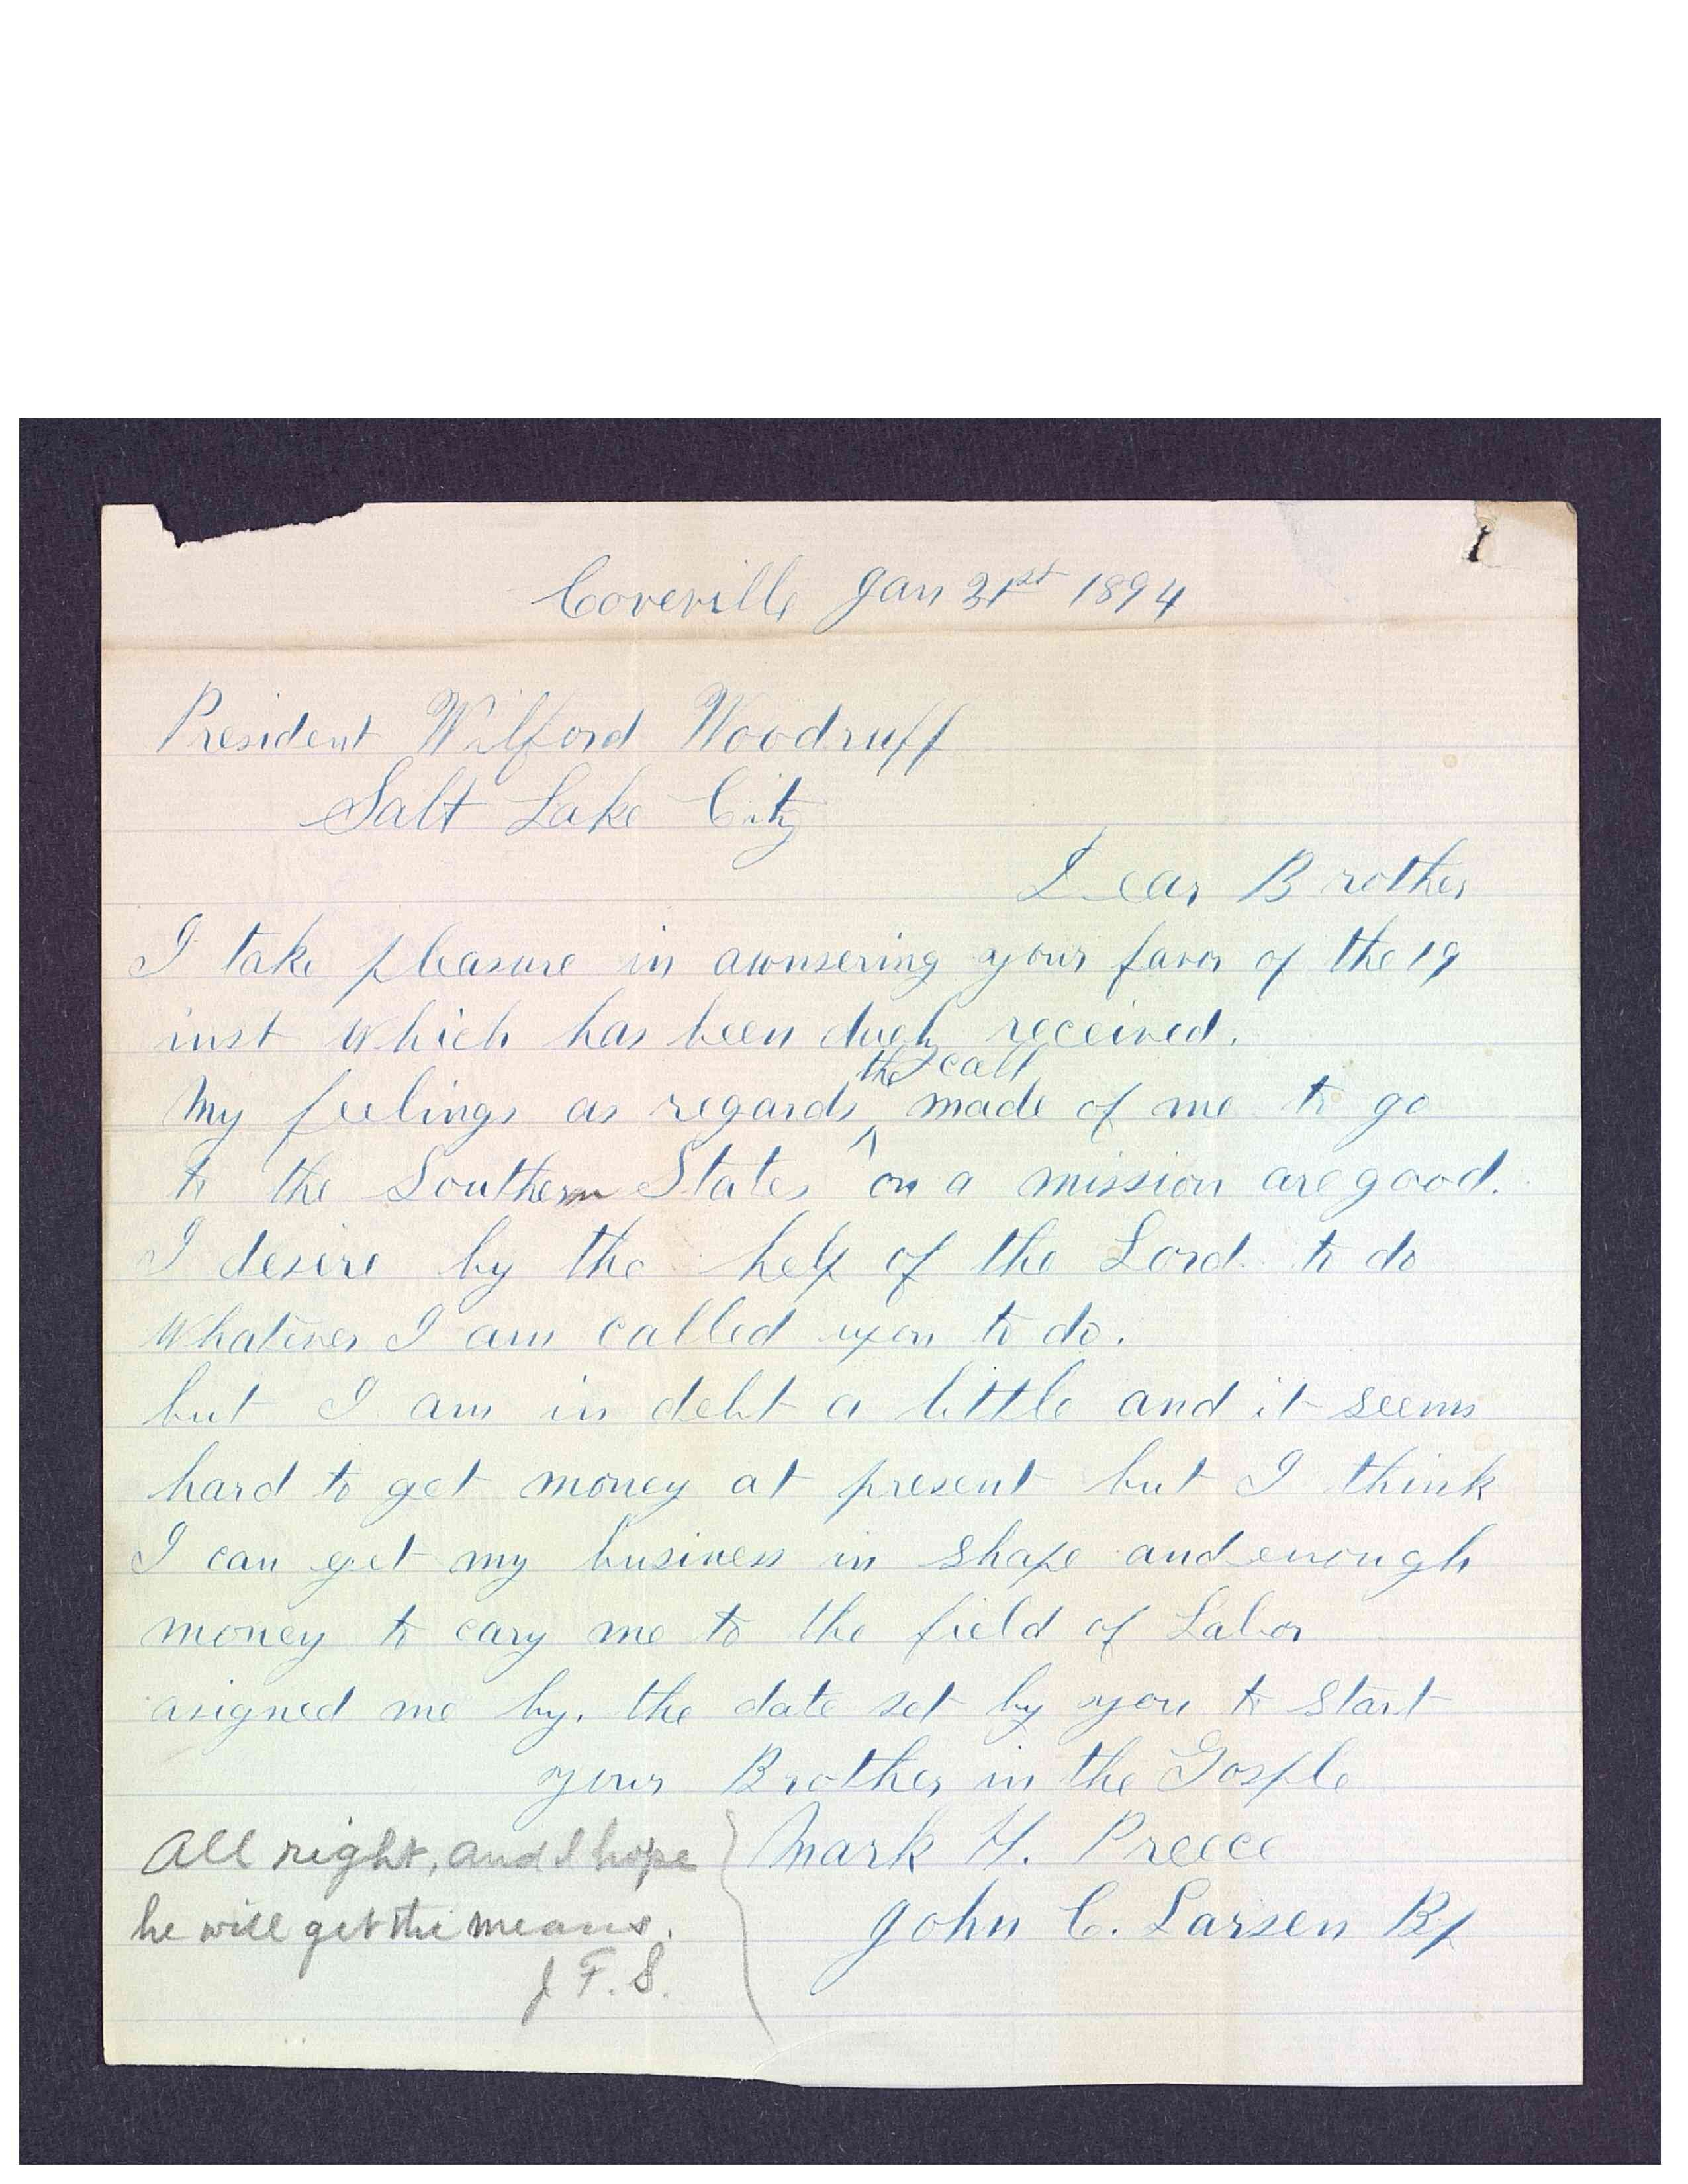 Coveville Jan 31st 1894
President Wilford Woodruff
Salt Lake City
Dear Brother
I take pleasure in awnsering your favor of the 19
inst which has been duely received.
the call
My feelings as regards ^ made of me to go
to the Southern States on a mission are good.
I desire by the help of the Lord to do
whatever I am called upon to do.
but I am in debt a little and it seems
hard to get money at present but I think
I can get my business in shape and enough
money to cary me to the field of Labor
asigned me by. the date set by you to start
your Brother in the Gosple
Mark H. Preece
John C. Larsen Bp
All right, and I hope
he will get the means.
J. F. S.